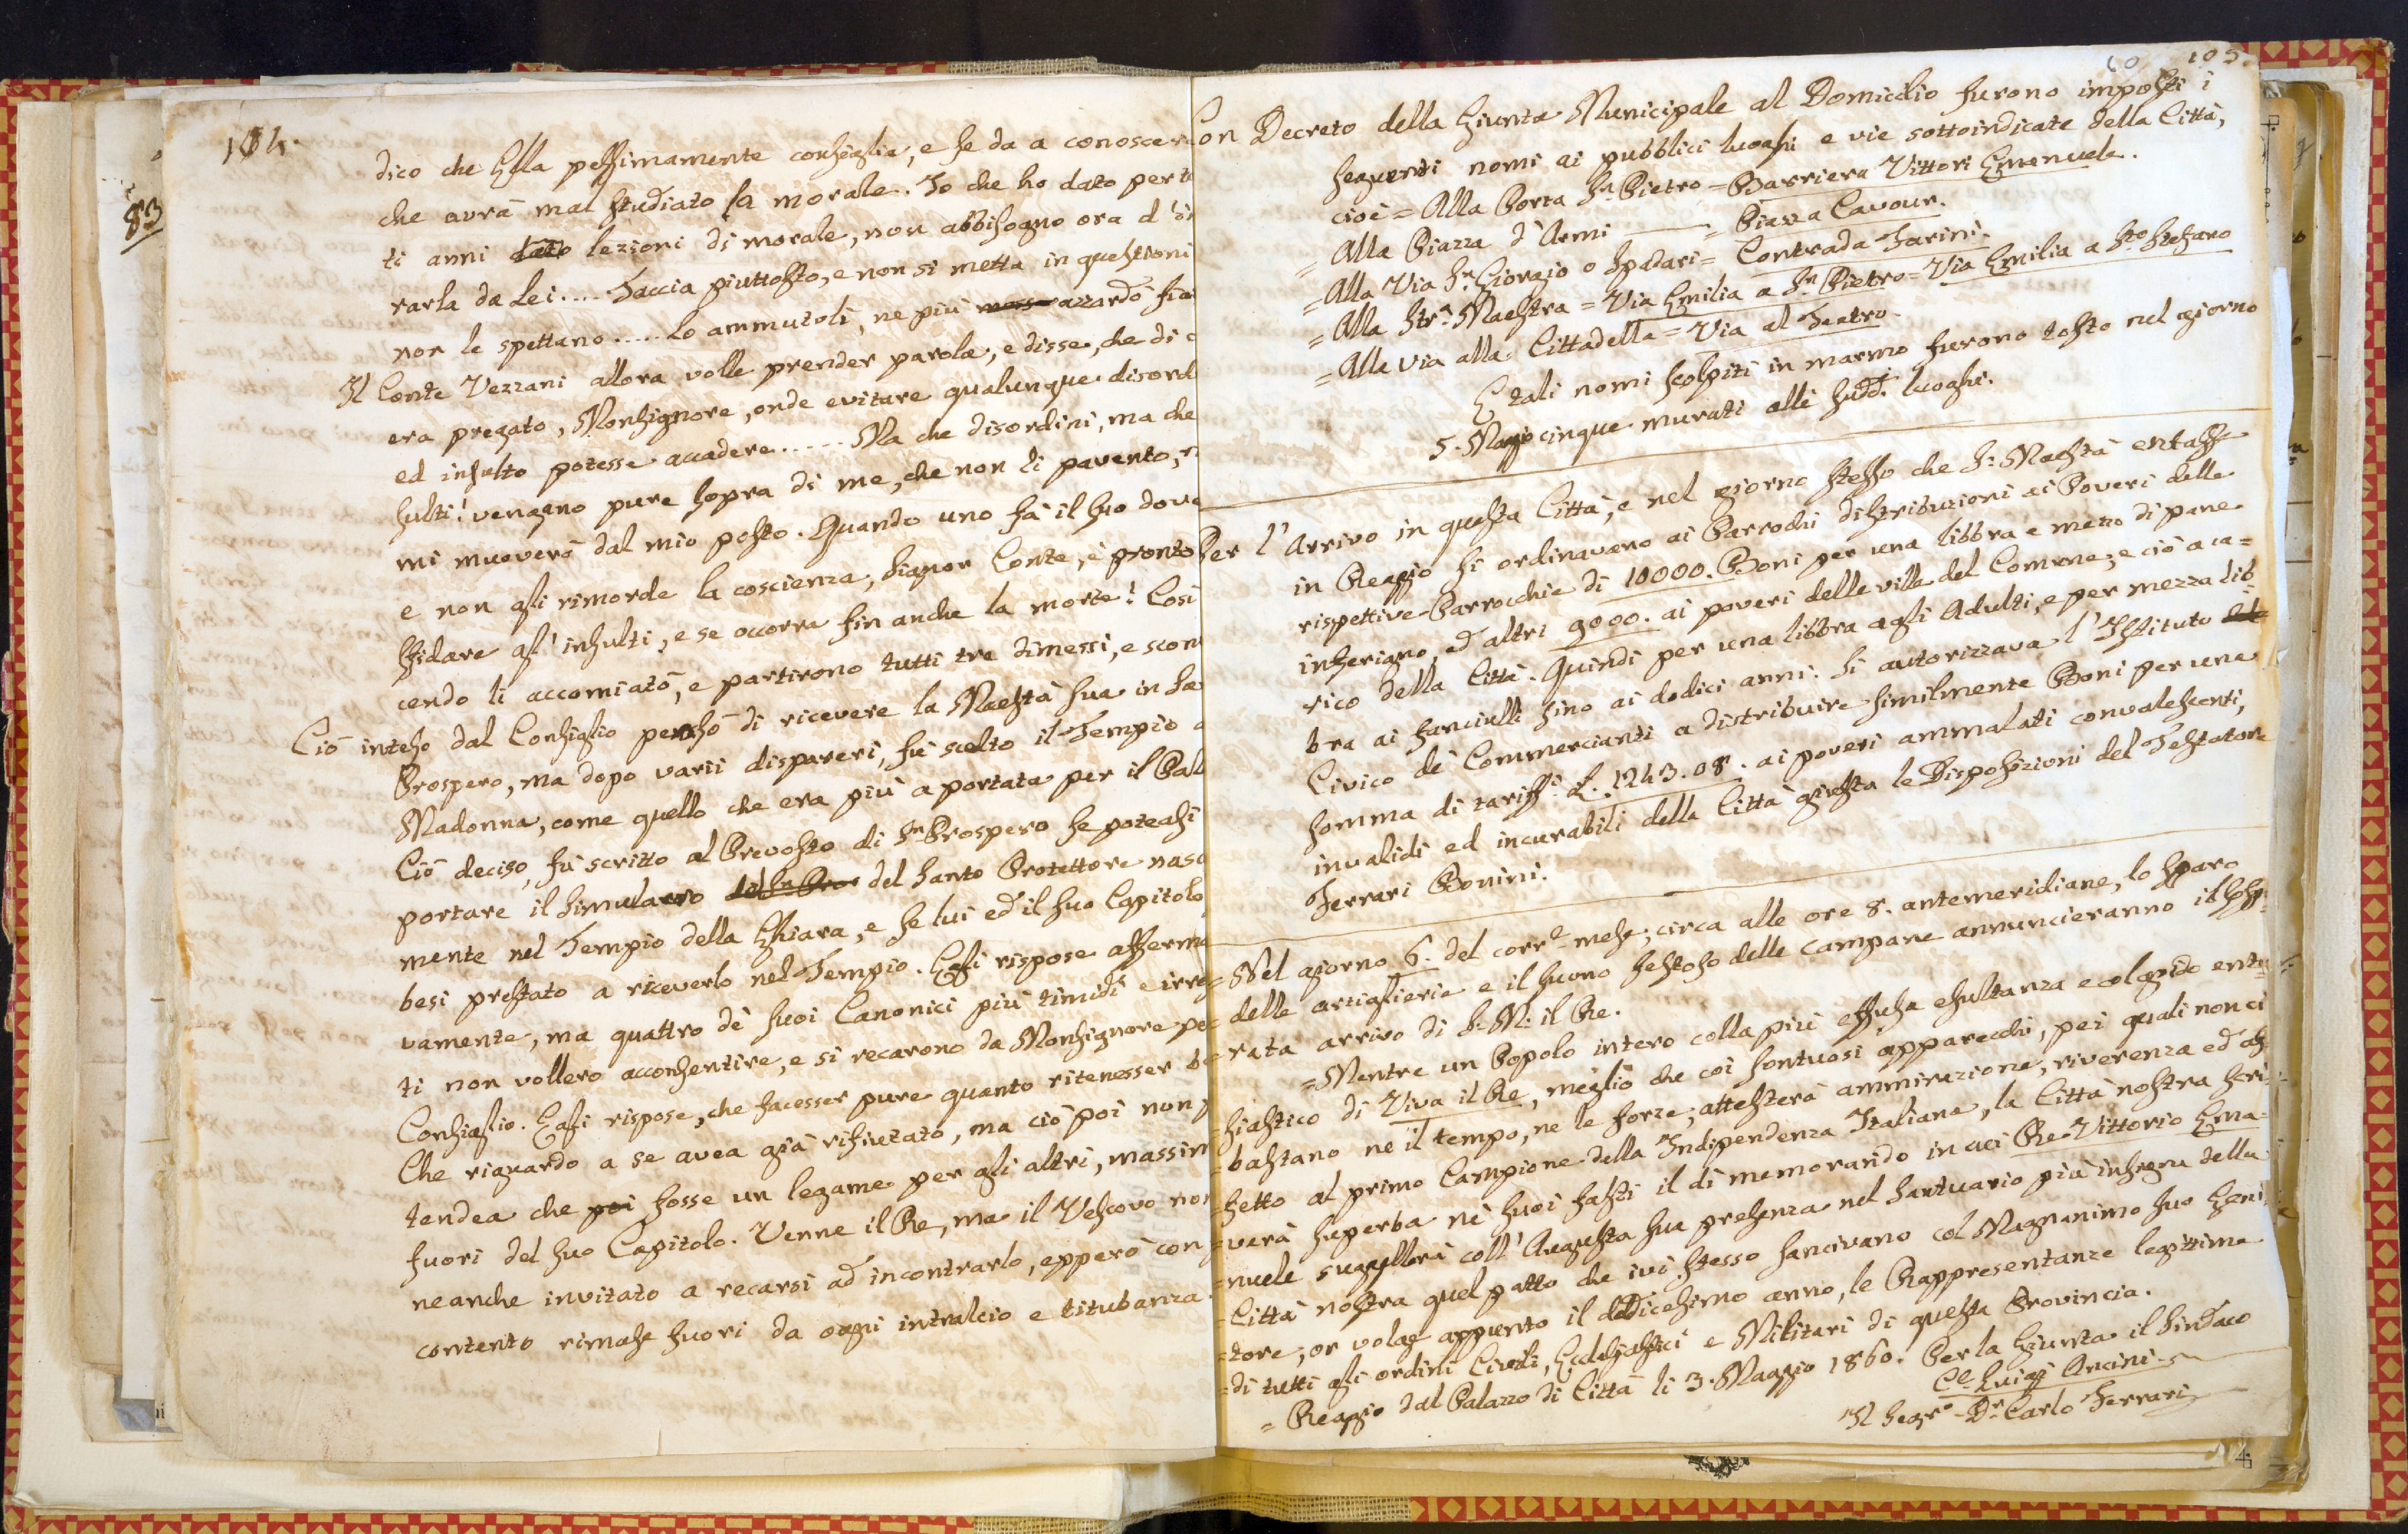 104.
83
dico che Ella pessimamente consiglia, e se da a conoscer
che avrà mal studiato la morale. Io che ho dato per
ti anni dato lezioni di morale, non abbisogno ora d'
rarla da Lei.... Faccia piuttosto, e non si metta in questioni
non le spettano..... Lo ammutolì, ne più azzardò
Il Conte Vezzani allora volle prender parola, e disse, che di
era pregato, Monsignore, onde evitare qualunque disord
ed insulto potesse accadere...... Ma che disordini, ma che
sulti! vengano pure sopra di me, che non li pavento,
mi muoverò dal mio posto. Quando uno fà il suo dove
e non gli rimorde la coscienza, Signor Conte, è pronto
sfidare gl'insulti, e se occorra fin anche la morte! Così
cendo li accomiatò, e partirono tutti tre dimessi, e scon
Ciò inteso dal Consiglio pensò di ricevere la Maestà sua in Sa
Prospero, ma dopo varii dispareri, fù scelto il Tempio
Madonna, come quello che era più a portata per il Pal
Ciò deciso, fù scritto al Prevosto di Sn Prospero se poteasi
portare il Simulacro del Sn Pros del Santo Protettore nasc
mente nel Tempio della Ghiara, e se lui ed il suo Capitolo
besi prestato a riceverlo nel Tempio. Egli rispose afferma
vamente, ma quattro de' suoi Canonici più timidi e irre
ti non vollero acconsentire, e si recarono da Monsignore pe
Consiglio. Egli rispose, che facesser pure quanto ritenesser be
Che riguardo a se avea già rifiutato, ma ciò poi non
tendea che poi fosse un legame per gli altri, massim
fuori del suo Capitolo. Venne il Re, ma il Vescovo non
neanche invitato a recarsi ad incontrarlo, epperò con
contento rimase fuori da ogni intralcio e titubanza.
60 105.
Con Decreto della Giunta Municipale al Domicilio furono imposti i
seguenti nomi ai pubblici luoghi e vie sottoindicate della Città,
cioè = Alla Porta Sn Pietro = Barriera Vittori Emanuele.
= Alla Piazza d'Armi ——— = Piazza Cavour.
= Alla Via Sn Giorgio o Spadari = Contrada Farini.
= Alla Str.a Maestra = Via Emilia a Sn Pietro = Via Emilia a Sto Stefano
= Alla via alla Cittadella = Via al Teatro.
E tali nomi scolpiti in marmo furono tosto nel giorno
5. Maggio cinque murati alli sudd.i luoghi.
Per l'Arrivo in questa Città, e nel giorno stesso che S. Maestà entasse
in Reggio si ordinavano ai Parrochi distribuzioni ai Poveri delle
rispettive Parrocchie di 10000. Boni per una libbra e mezzo di pane
inferigno, ed altri 9000. ai poveri delle ville del Comune, e ciò a ca=
rico della Città. Quindi per una libbra agli Adulti, e per mezza lib
bra ai fanciulli fino ai dodici anni. Si autorizzava l'Istituto
Civico de' Commercianti a distribuire similmente Boni per una
somma di tariff.i £. 1243.08. ai poveri ammalati convalescenti,
invalidi ed incurabili della Città giusta le Disposizioni del Testatore
Ferrari Bonini.
= Nel giorno 6. del corr.e mese, circa alle ore 8. antemeridiane, lo sparo
= delle artiglierie e il suono festoso delle campane annuncieranno il sosp
= rata arrivo di S. M. il Re.
= Mentre un Popolo intero colla più effusa esultanza e col grido entu
= siastico di Viva il Re, meglio che coi sontuosi apparecchi, pei quali non ci
= bastano ne il tempo, ne le forze, attesterà ammirazione, riverenza ed af
= fetto al primo Campione della Indipendenza Italiana, la Città nostra scri
= verà superba ne' suoi fasti il dì memorando in cui Re Vittorio Ema=
= nuele suggellerà coll'Augusta sua presenza nel Santuario più insegne della
= Città nostra quel patto che ivi stesso sancivano col Magnanimo suo Geni
= tore, or volge appunto il dodicesimo anno, le Rappresentanze legittime
= di tutti gli ordini Civili, Ecclesiastici e Militari di questa Provincia.
= Reggio dal Palazzo di Città li 3. Maggio 1860. Per la Giunta il Sindaco
Ce. Luigi Ancini
Il Segr.o Dr. Carlo Ferrari